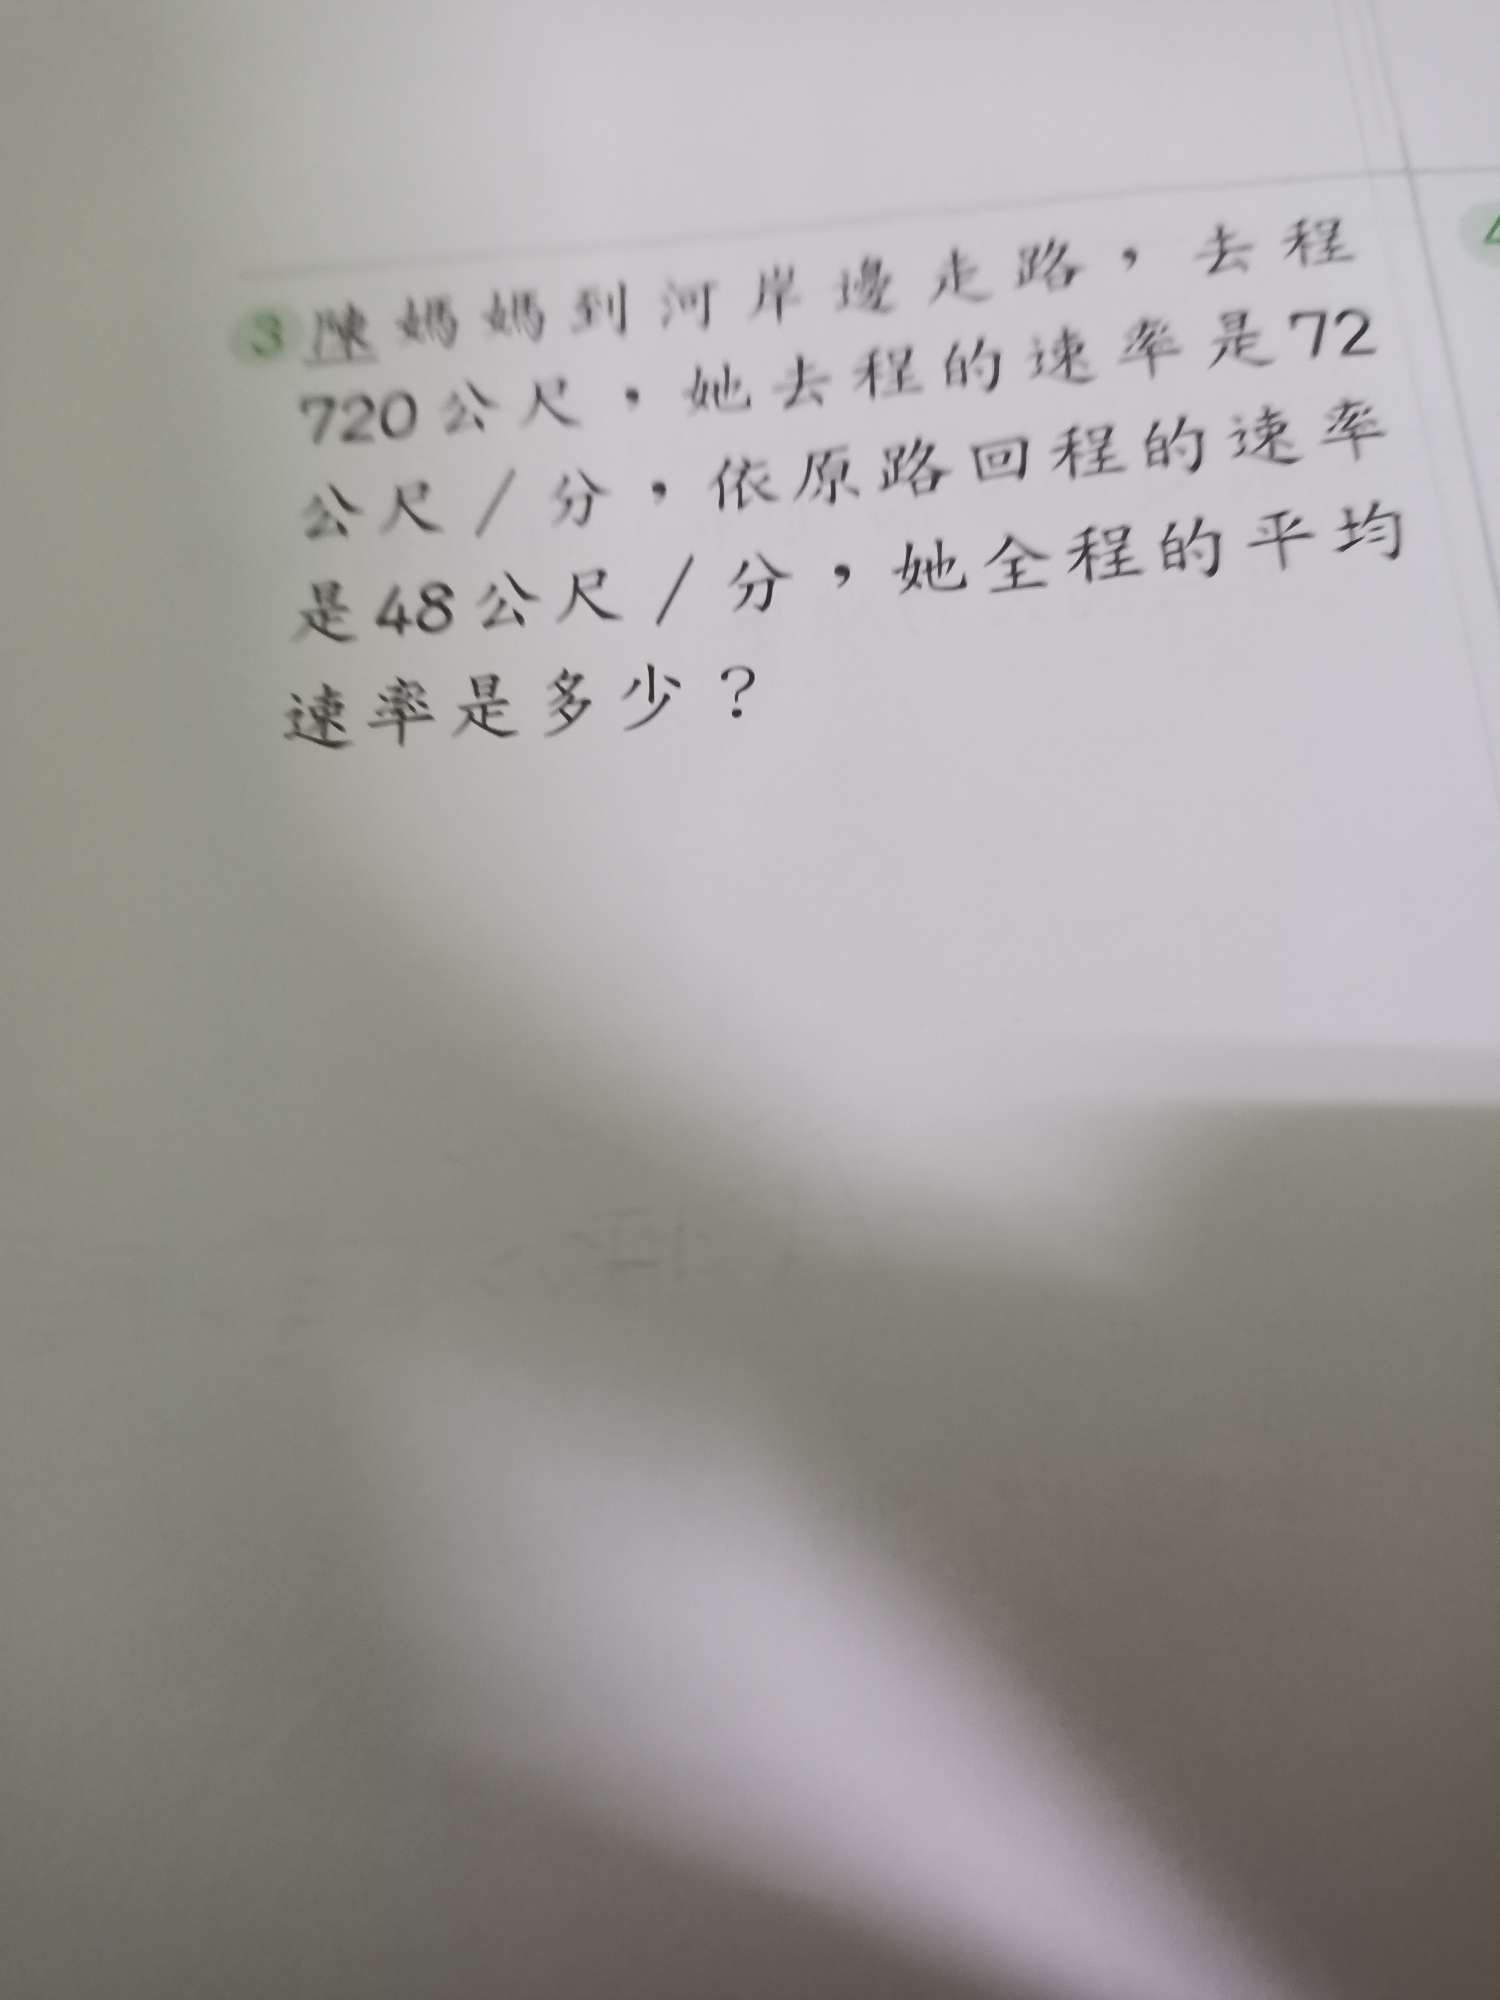 3 陳媽媽到河岸邊走路，去程
720公尺，她去程的速率是72
公尺／分，依原路回程的速率
是48公尺／分，她全程的平均
速率是多少？